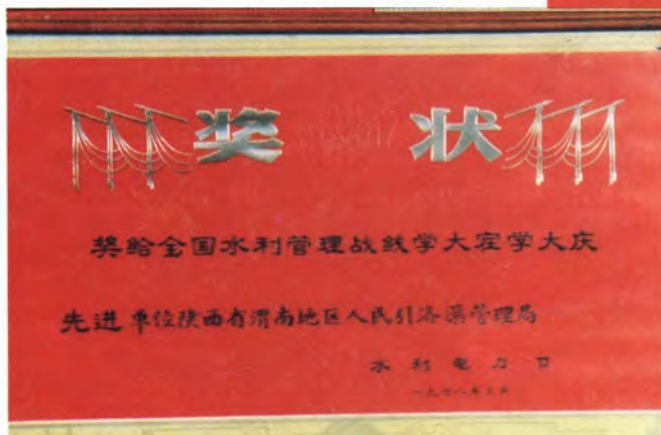 奖 状
奖给全国水利管理战线学大寨学大庆
先进单位陕西省渭南地区人民引洛渠管理局
水利电力卩
一九七八年